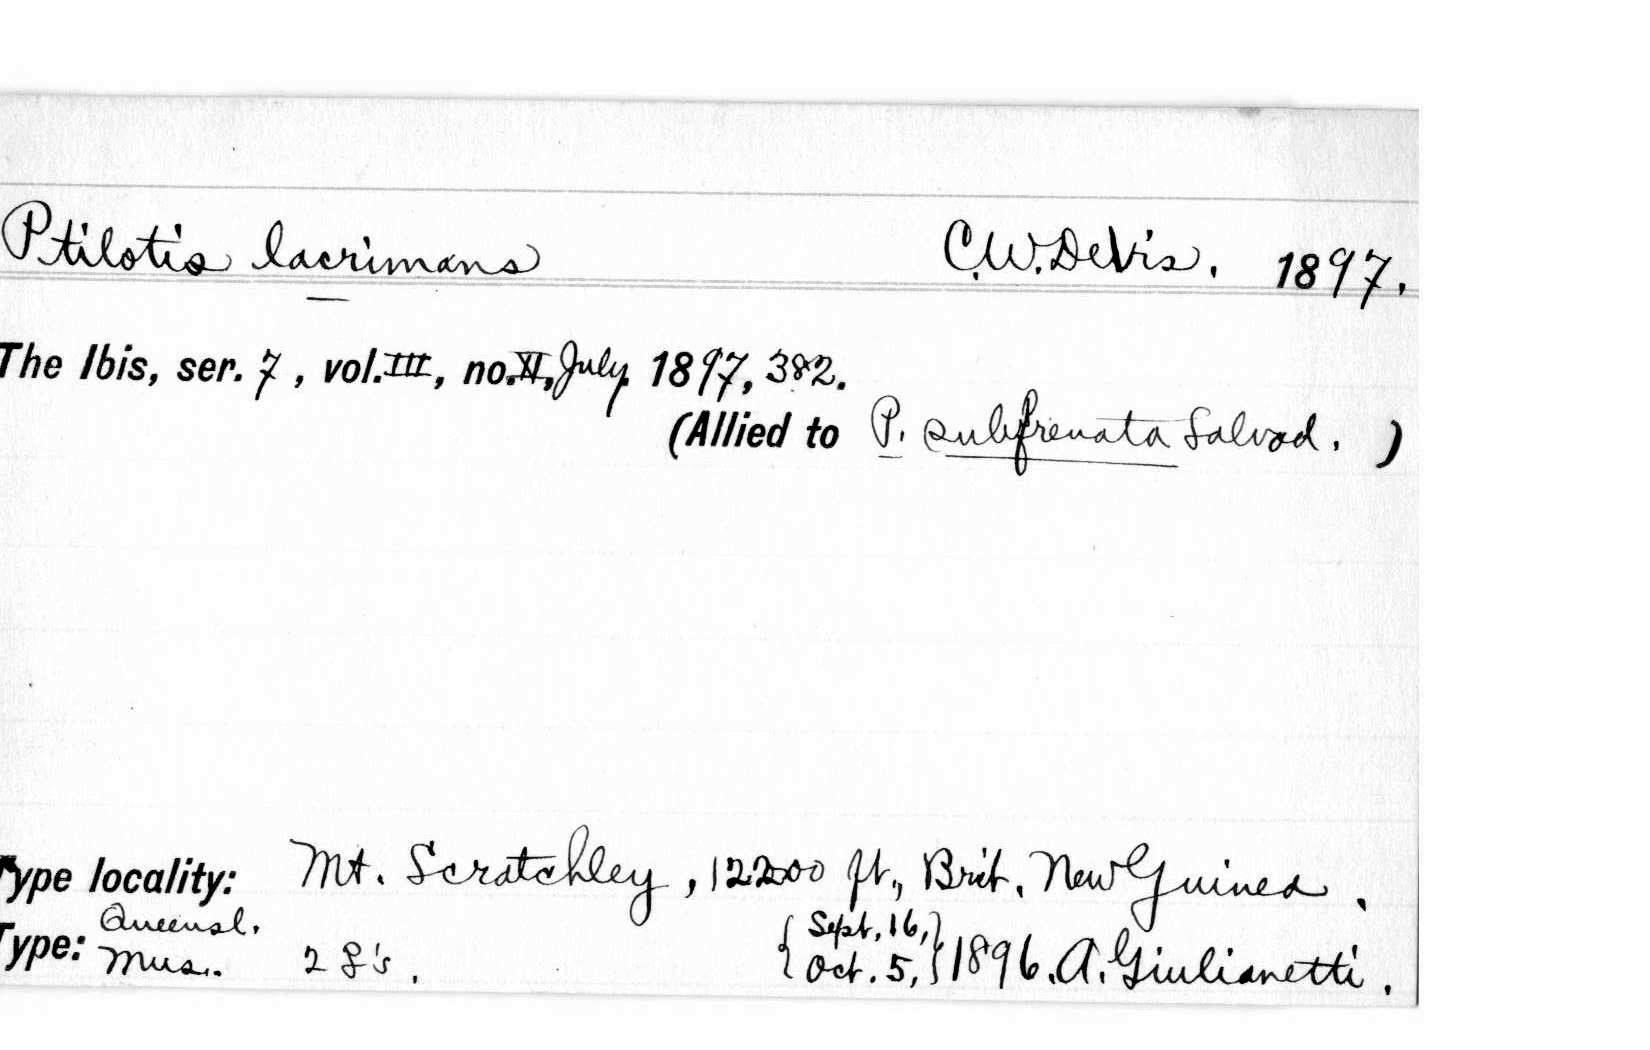 Ptilotis lacrimans C.W. DeVis. 1897.
The Ibis, ser. 7, vol. III, no. XI, July, 1897, 382.
(Allied to P. subfrenata Salvad. )
Type locality: Mt. Scratchley, 12200 ft., Brit. New Guinea.
Queensl.
Type: Mus. 2 ♀'s. {Sept. 16, Oct. 5,} 1896. A. Giulianetti.